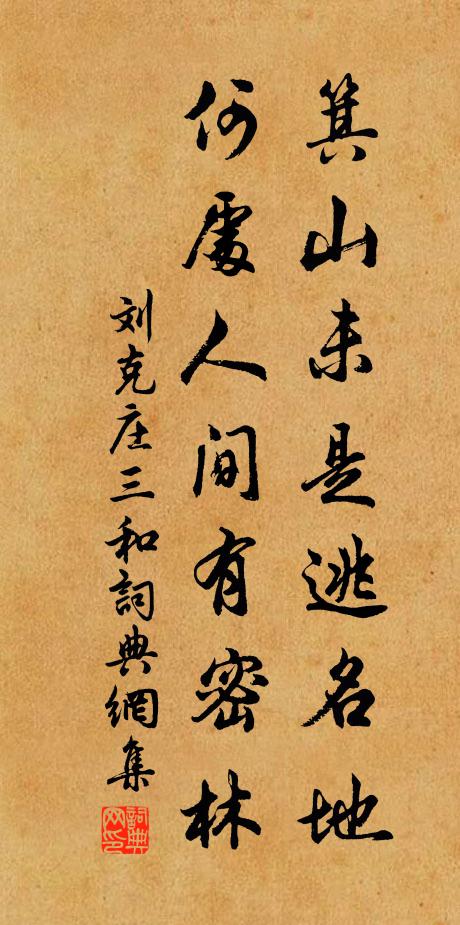 箕山未是逃名地
何處人間有密林
刘克庄三和詞典網集
詞典
网印